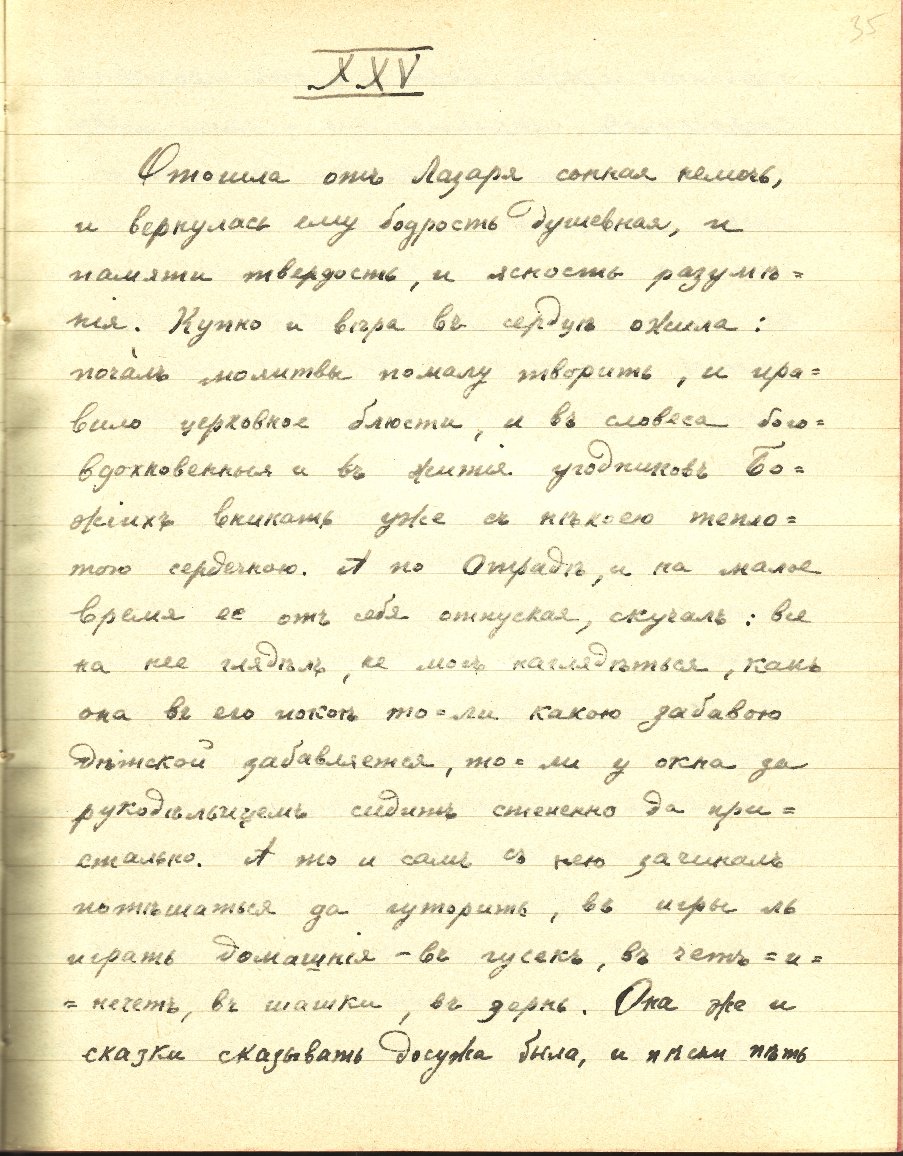 35
XXV
Отошла отъ Лазаря сонная немочь,
и вернулась ему бодрость душевная, и
памяти твердость, и ясность разумѣ=
нія. Купно и вѣра въ сердцѣ ожила:
почалъ молитвы помалу творить, и пра=
вило церковное блюсти, и въ словеса бого=
вдохновенныя и въ житія угодниковъ Бо=
жіихъ вникать уже съ нѣкоею тепло=
тою сердечною. А по Отрадѣ, и на малое
время ее отъ себя отпуская, скучалъ: все
на нее глядѣлъ, не могъ наглядѣться, какъ
она въ его покоѣ то=ли какою забавою
дѣтской забавляется, то=ли у окна за
рукодѣльицемъ сидитъ степенно да при=
стально. А то и самъ съ нею зачиналъ
потѣшаться да гуторить, въ игры ль
играть домашнія – въ гусекъ, въ четъ=и=
=нечетъ, въ шашки, въ зернь. Она же и
сказки сказывать досужа была, и пѣсни пѣть